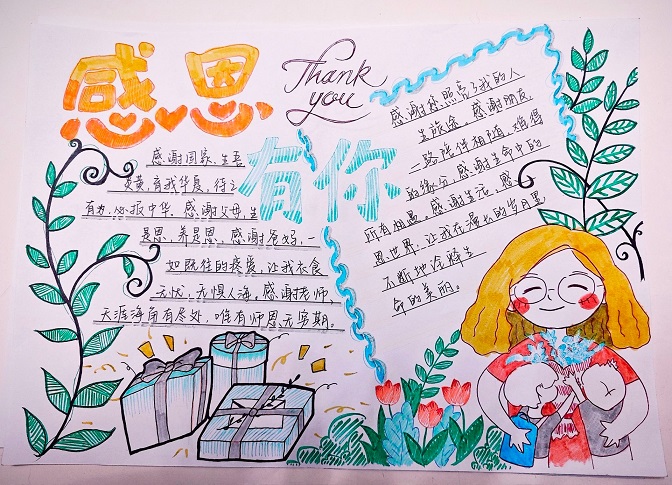 感恩
Thank
you
有你
感谢国家,生吾
炎黄,育我华夏,待之
有为,必报中华。感谢父母,生
是恩,养是恩,感谢爸妈,一
如既往的疼爱,让我衣食
无忧,无惧人海,感谢老师,
天涯海角有尽处,唯有师恩无穷期。
感谢你照亮了我的人
生旅途,感谢朋友,
一路陪伴相随,难得
的缘分,感谢生命中的
所有相遇。感谢生活,感
恩世界,让我在漫长的岁月里
不断地诠释生
命的美丽。